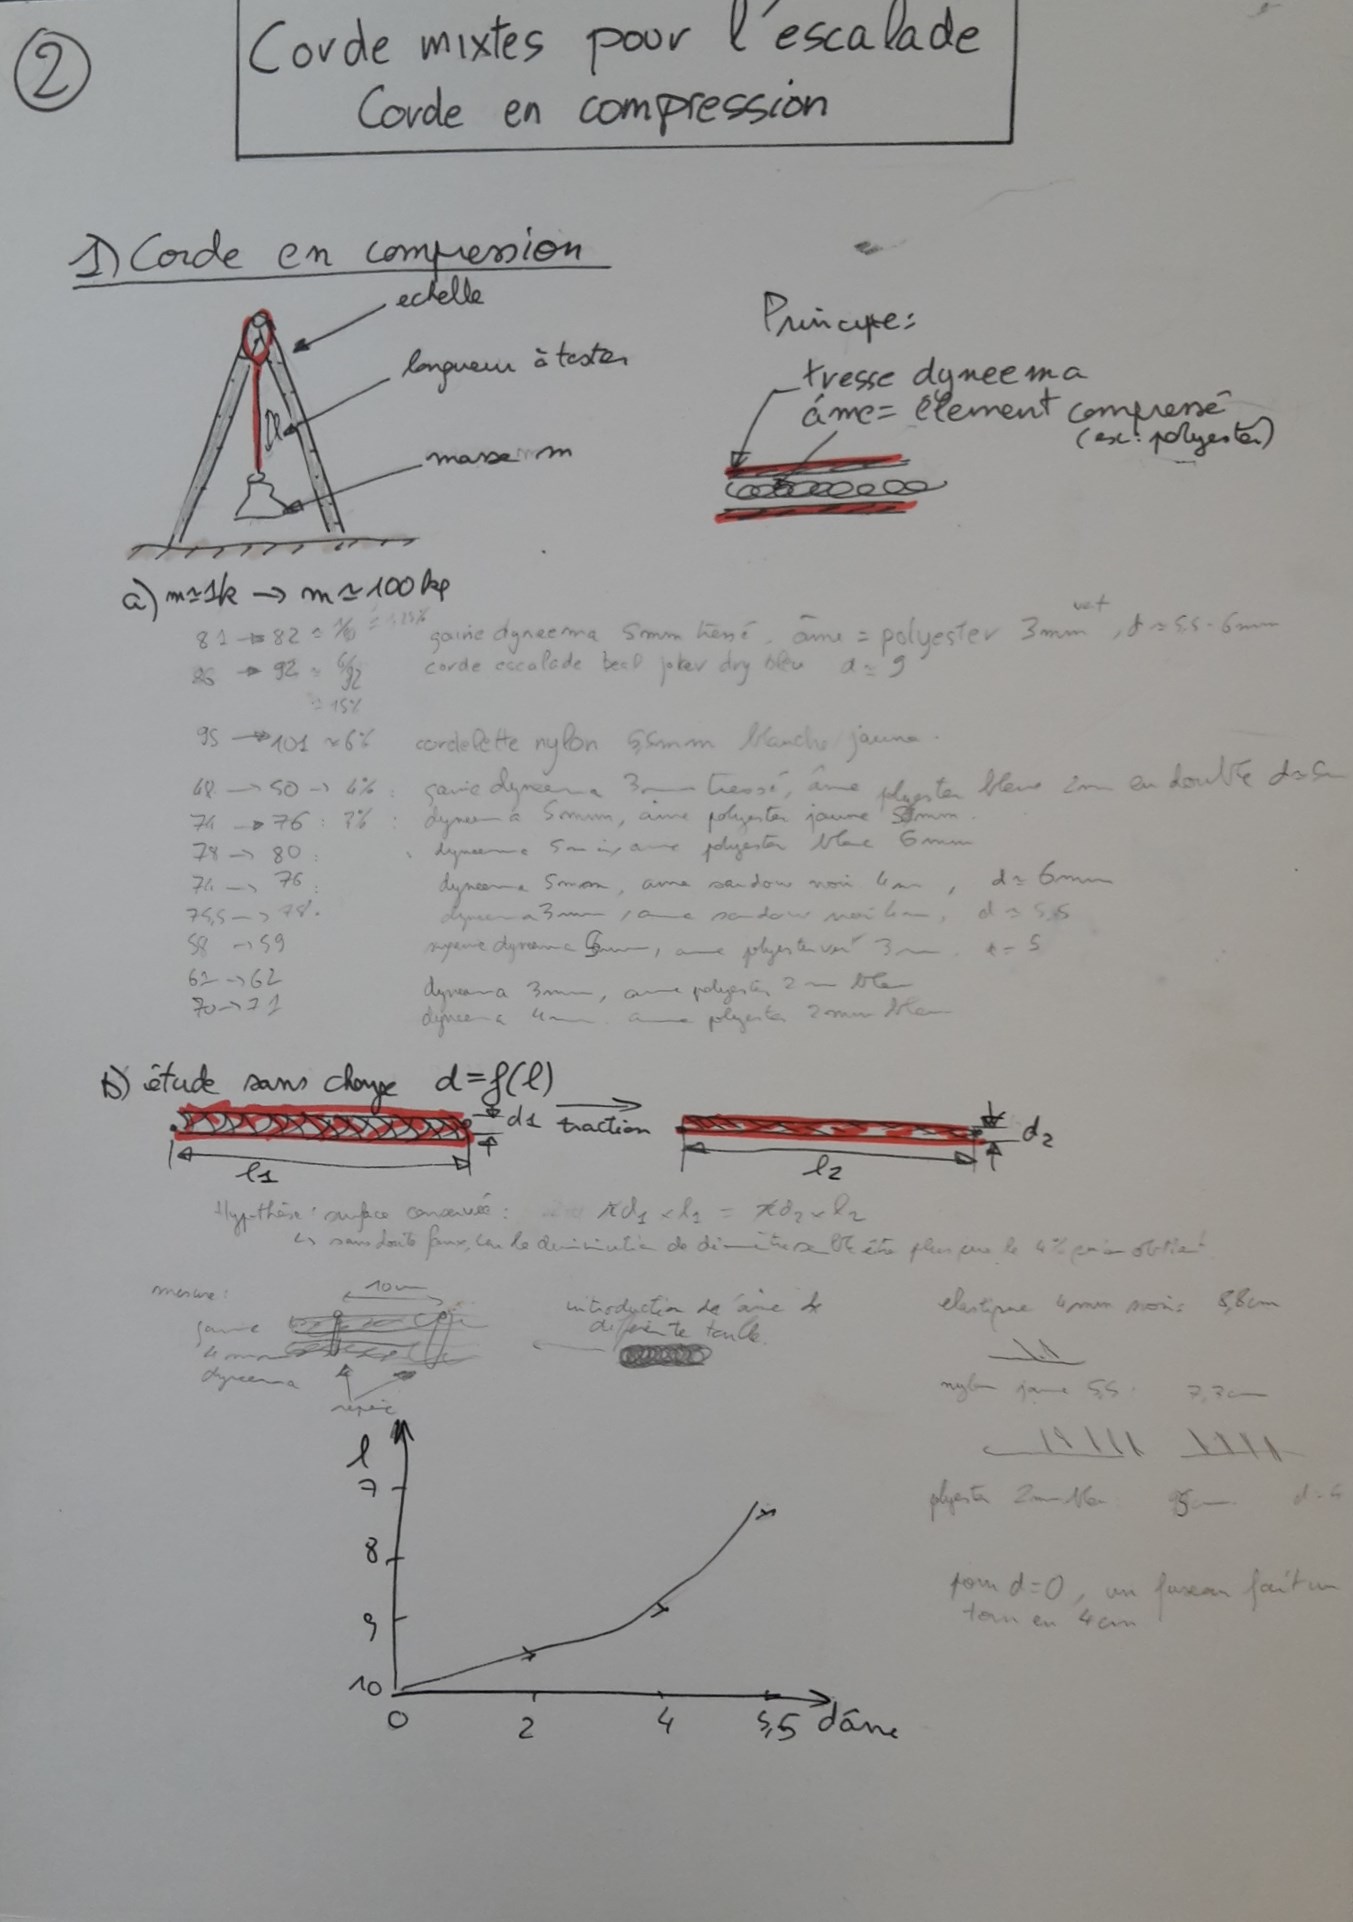 2
Corde mixtes pour l'escalade
Corde en compression
1) Corde en compression
echelle
longueur à tester
masse m
Principe:
tresse dyneema
âme = élement compressé
(ex: polyester)
a) m≃1k → m≃100kg
81 → 82 gaine dyneema 5mm tressé. âme = polyester 3mm vert, d ≃ 5,5-6mm
→ 92 corde escalade beal joker dry bleu d ≃ 9
≃ 15%
95 → 101 ≃6% cordelette nylon 5,5mm blanche jaune.
48 → 50 → 4% : gaine dyneema 3mm tressé, âme polyester bleue 2mm en double
74 → 76 : 3% : dyneema 5mm, âme polyester jaune mm.
78 → 80 : dyneema 5mm, âme polyester blanc 6mm
74 → 76 : dyneema 5mm, âme sandow noir 4mm, d≃ 6mm
75,5 → 78. dyneema 3mm, âme sandow noir 4mm, d ≃ 5,5
58 → 59 dyneema mm, âme polyester vert 3mm. = 5
61 → 62 dyneema 3mm, âme polyester 2mm bleu
70 → 71 dyneema 4mm. âme polyester 2mm bleu
b) étude sans charge d=f(l)
d1 traction d2
l1 l2
Hypothèse: surface conservée: πd1 × l1 = πd2 × l2
↳ sans doute faux, car la diminution de diamètre être plus que le 4% qu'on obtient
mesure: 10cm
gaine
4mm
dyneema
repère
introduction de âme de
différente taille.
elastique 4mm noir: 8,8cm
nylon jaune 5,5 7,7cm
polyester 2mm bleu
pour d=0, un fuseau fait un
tour en 4cm
l
7
8
9
10
0 2 4 5,5 dâme